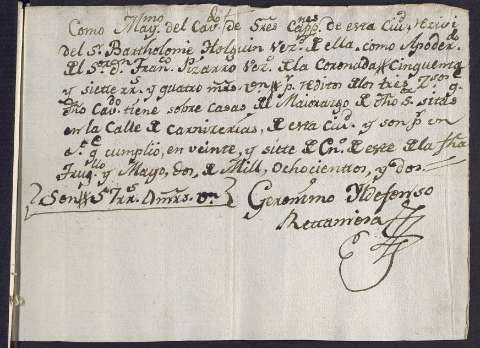 Como Maymo. del Cavdo. de Sres Cappnes. de esta Ciud. recivi
del Sr. Bartholome Holguin Vezo. de ella, como Apoderdo.
de Sr. dn. Franco. Pizarro Vezo. de la Coronada Cinquenta
y siete rrs. y quatro mrs. vn pr. reditos de los tres que
dho Cavdo. tiene sobre Casas del Maiorazgo de dho Sr. sitas
en la Calle de Carnizerias, de esta Ciud. y son pr. un
que cumplio, en veinte, y siete de Eno. de este de la fha
Trugllo. y Mayo, dos, de Mill, Ochocientos, y dos.
Son 57 rr. 4 mrs. vn.
Geronimo Yldefonso
Rettamosa